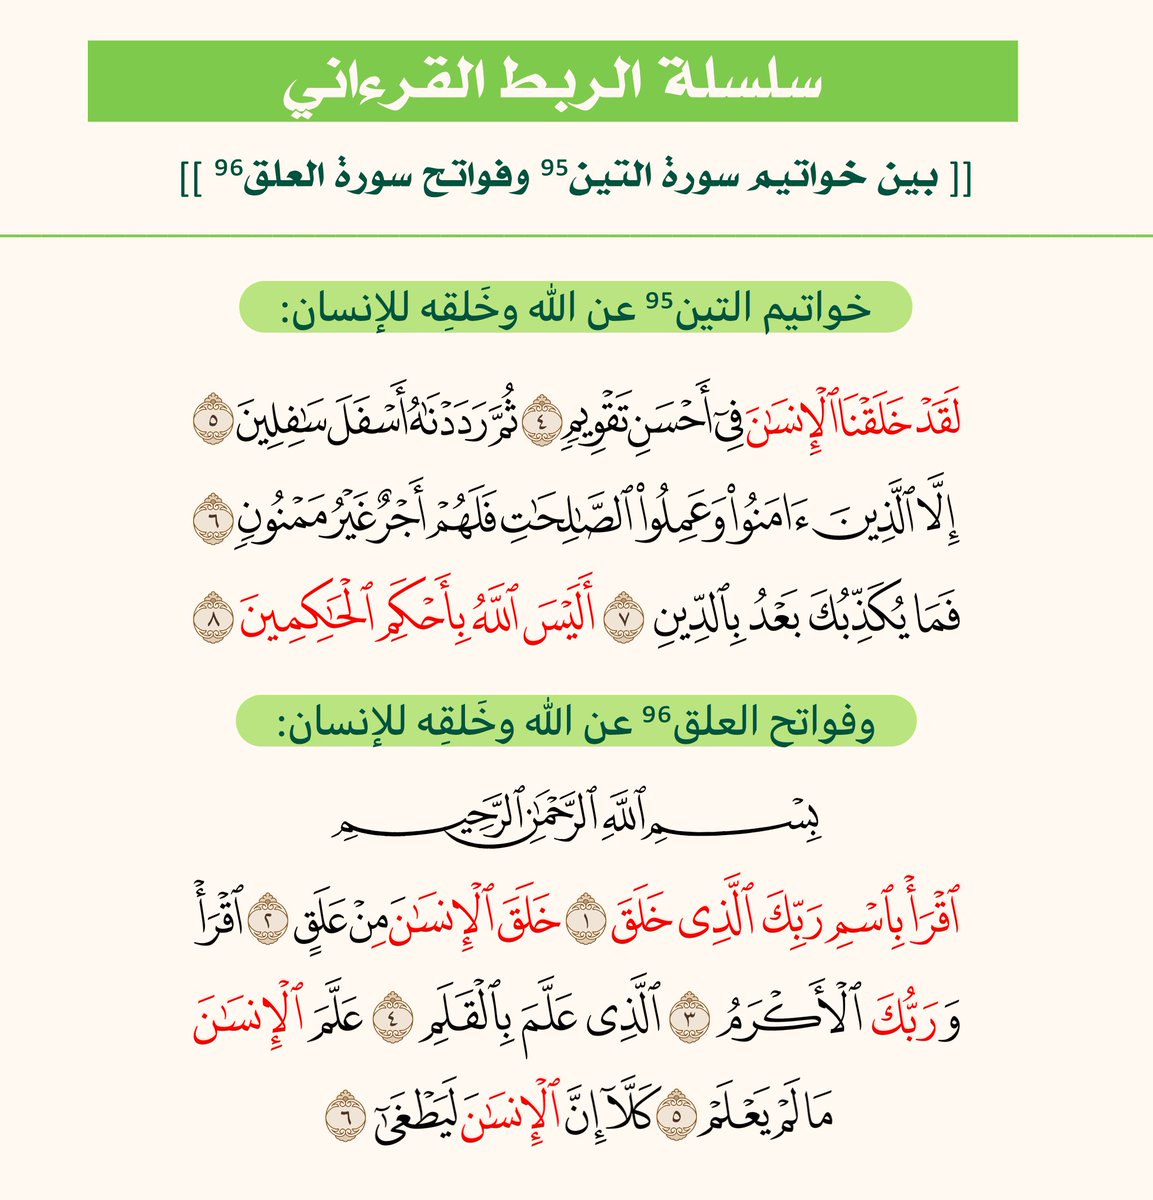 سلسلة الربط القرءاني
[[ بين خواتيم سورة التين⁹⁵ وفواتح سورة العلق⁹⁶ ]]
خواتيم التين⁹⁵ عن الله وخَلقِه للإنسان:
لَقَدْ خَلَقْنَا ٱلْإِنسَٰنَ فِىٓ أَحْسَنِ تَقْوِيمٍ ٤ ثُمَّ رَدَدْنَٰهُ أَسْفَلَ سَٰفِلِينَ ٥
إِلَّا ٱلَّذِينَ ءَامَنُوا۟ وَعَمِلُوا۟ ٱلصَّٰلِحَٰتِ فَلَهُمْ أَجْرٌ غَيْرُ مَمْنُونٍ ٦
فَمَا يُكَذِّبُكَ بَعْدُ بِٱلدِّينِ ٧ أَلَيْسَ ٱللَّهُ بِأَحْكَمِ ٱلْحَٰكِمِينَ ٨
وفواتح العلق⁹⁶ عن الله وخَلقِه للإنسان:
بِسْمِ ٱللَّهِ ٱلرَّحْمَٰنِ ٱلرَّحِيمِ
ٱقْرَأْ بِٱسْمِ رَبِّكَ ٱلَّذِى خَلَقَ ١ خَلَقَ ٱلْإِنسَٰنَ مِنْ عَلَقٍ ٢ ٱقْرَأْ
وَرَبُّكَ ٱلْأَكْرَمُ ٣ ٱلَّذِى عَلَّمَ بِٱلْقَلَمِ ٤ عَلَّمَ ٱلْإِنسَٰنَ
مَا لَمْ يَعْلَمْ ٥ كَلَّآ إِنَّ ٱلْإِنسَٰنَ لَيَطْغَىٰٓ ٦